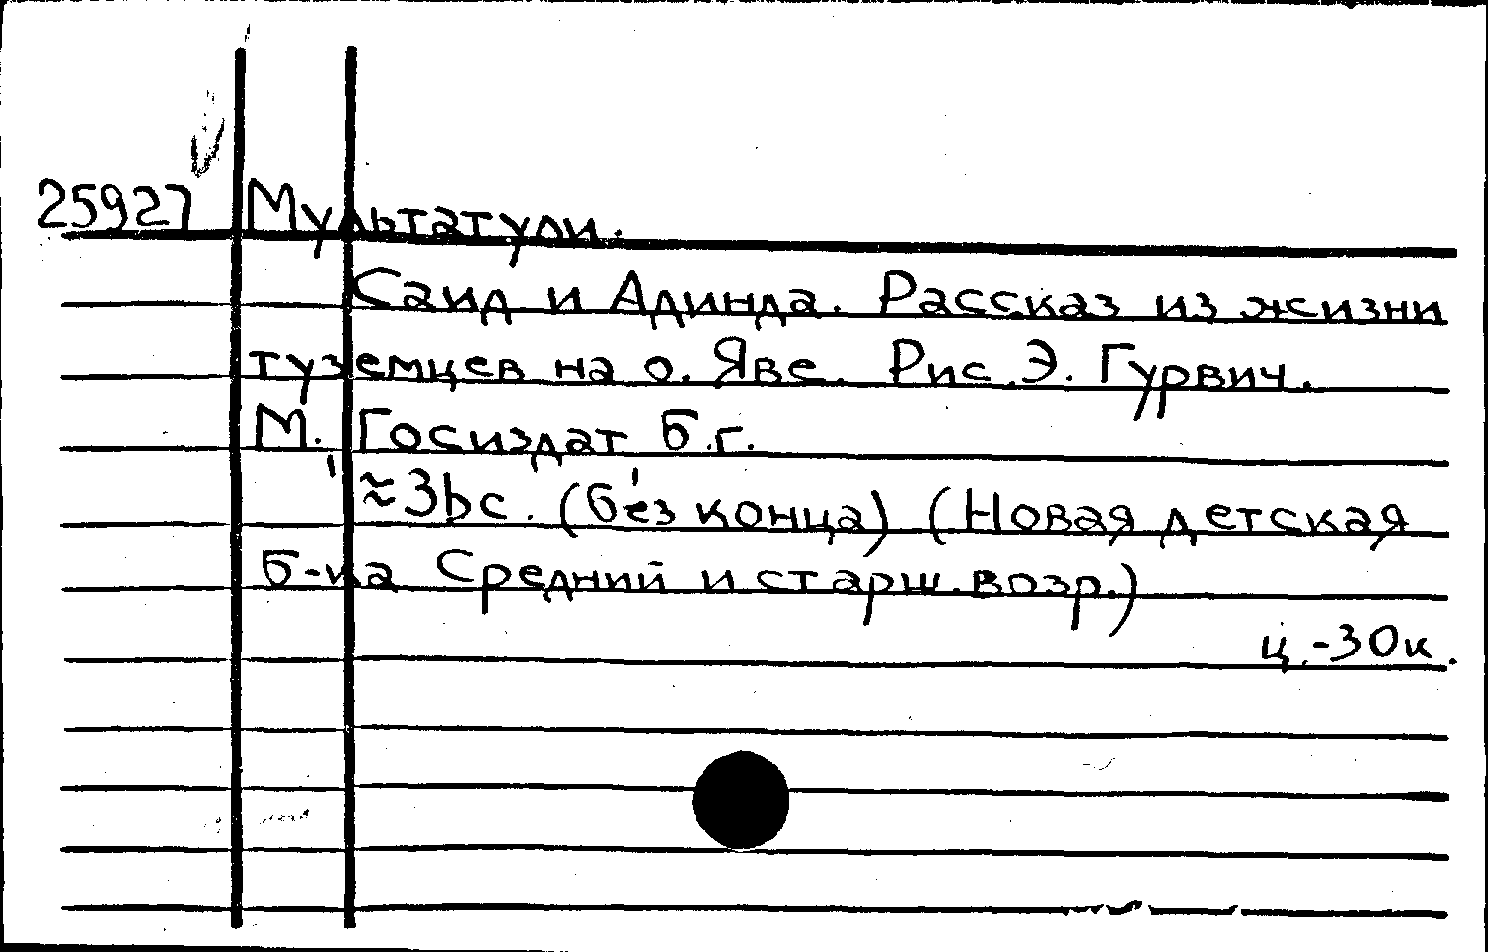 25927 Мультатули.
Саид и Адинда. Рассказ из жизни
туземцев на о. Яве. Рис. Э. Гурвич.
М. Госиздат б.г.
≈3bс. (без конца) (Новая детская
б-ка Средний и старш. возр.)
ц.-30к.